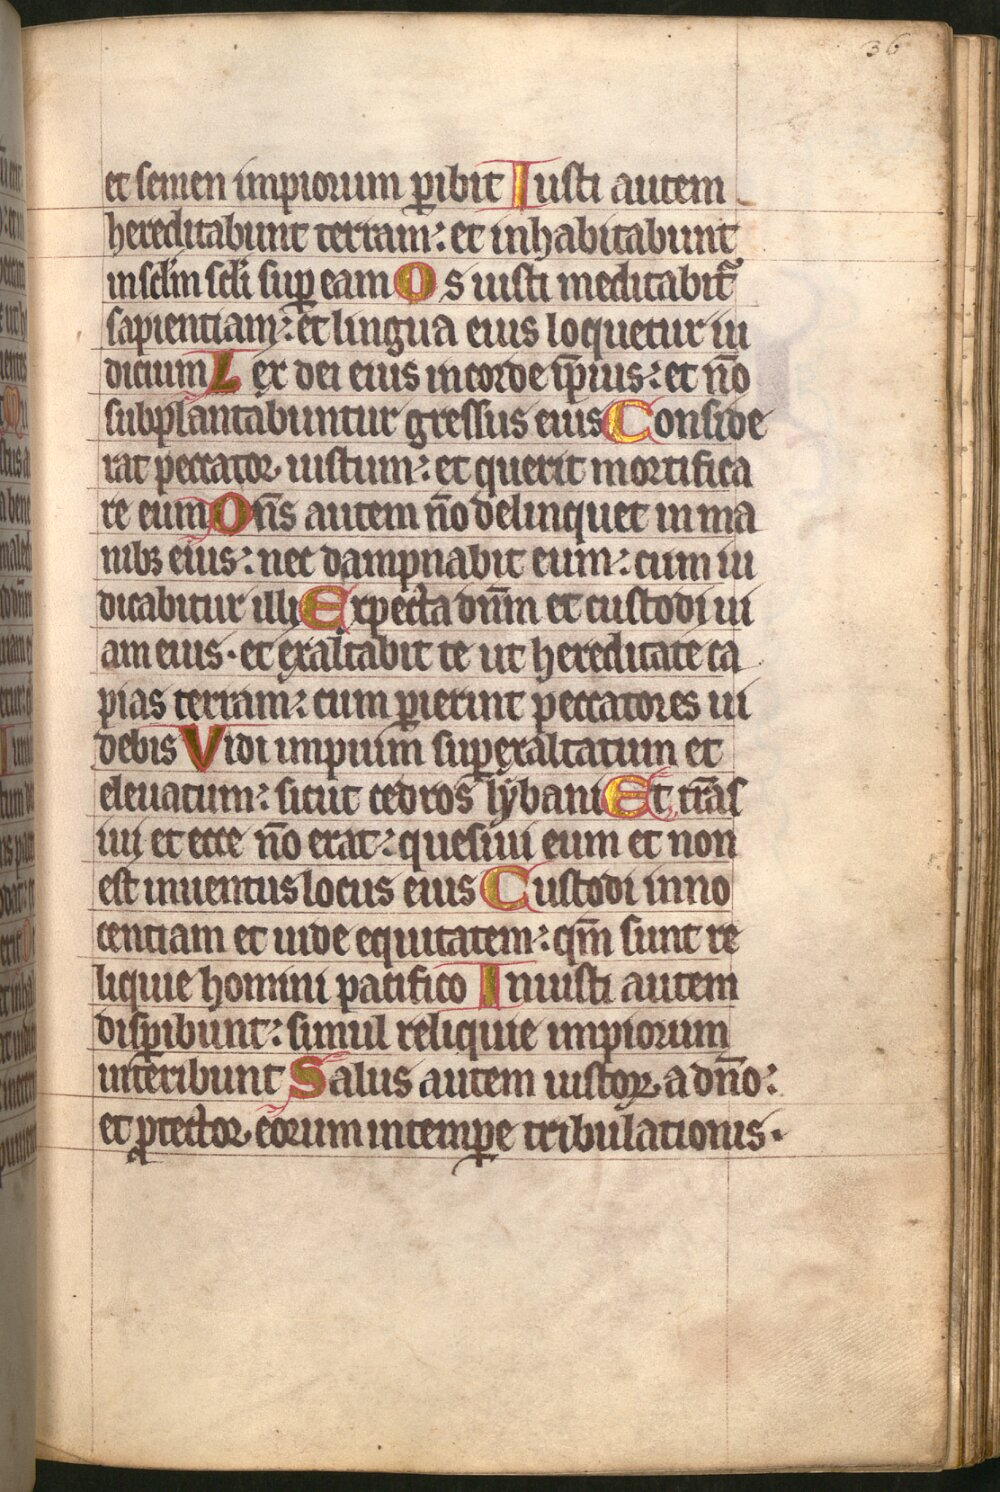 36
et semen impiorum ꝑibit Iusti autem
hereditabunt terram: et inhabitabunt
in sc̄lm sc̄li suꝑ eam Os iusti meditabit᷑
sapientiam: et lingua eius loquetur iu
dicium Lex dei eius in corde ip̄ius: et nō
subplantabuntur gressus eius Conside
rat peccator iustum: et querit mortifica
re eum Dn̄s autem nō delinquet in ma
nibꝫ eius: nec dampnabit eum: cum iu
dicabitur illi Expecta dn̄m et custodi ui
am eius · et exaltabit te ut hereditate ca
pias terram: cum ꝑierint peccatores ui
debis Vidi impium superexaltatum et
eleuatum: sicut cedros lybani Et trā̄s
iui et ecce nō erat: quesiui eum et non
est inuentus locus eius Custodi inno
centiam et uide equitatem: qm̄ sunt re
liquie homini pacifico Iniusti autem
disꝑibunt: simul reliquie impiorum
interibunt Salus autem iustoꝝ a dn̄o:
et ꝓtector eorum in tempore tribulationis ·